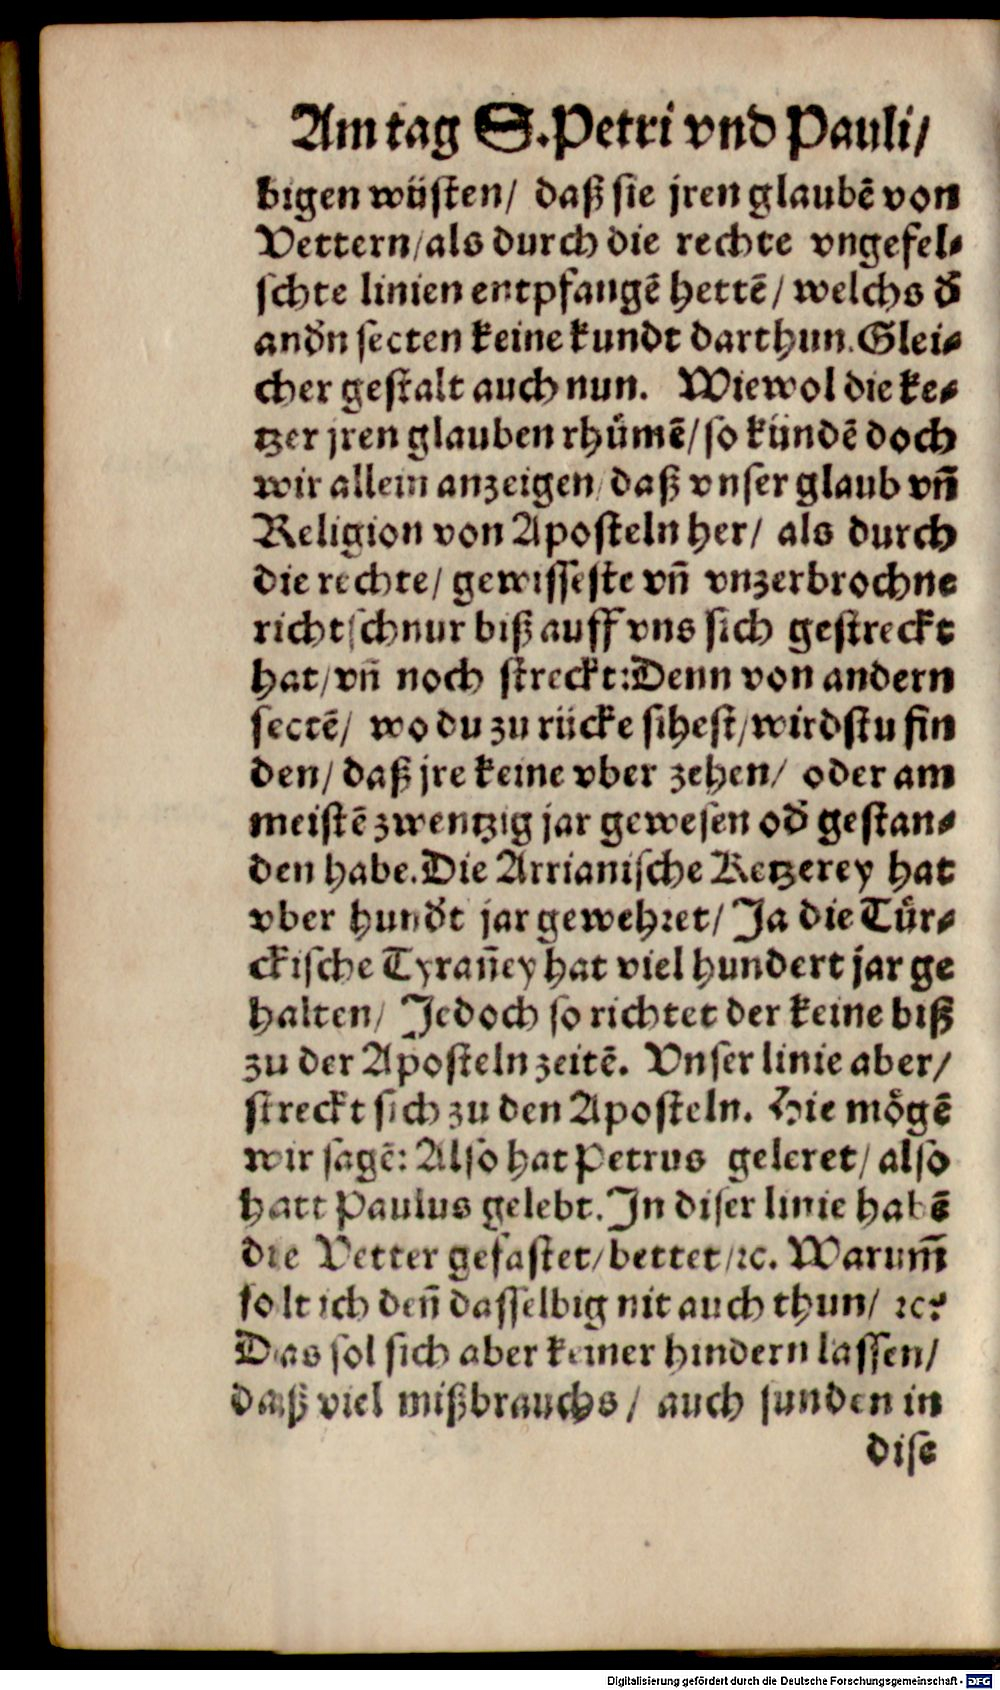 Am tag S. Petri vnd Pauli/
bigen wüsten/ daß sie jren glaubẽ von
Vettern/als durch die rechte vngefel⸗
schte linien entpfangẽ hettẽ/ welchs d̃
and̃n secten keine kundt darthun. Glei⸗
cher gestalt auch nun. Wiewol die ke⸗
tzer jren glauben rhuͤmẽ/ so kündẽ doch
wir allein anzeigen/ daß vnser glaub vñ
Religion von Aposteln her/ als durch
die rechte/ gewisseste vñ vnzerbrochne
richtschnur biß auff vns sich gestreckt
hat/ vñ noch streckt: Denn von andern
sectẽ/ wo du zu rücke sihest/ wirdstu fin
den/ daß jre keine vber zehen/ oder am
meistẽ zwentzig jar gewesen od̃ gestan⸗
den habe. Die Arrianische Ketzerey hat
vber hund̃t jar gewehret/ Ja die Tuͤr⸗
ckische Tyrañey hat viel hundert jar ge
halten/ Jedoch so richtet der keine biß
zu der Aposteln zeitẽ. Vnser linie aber/
streckt sich zu den Aposteln. Hie moͤgẽ
wir sagẽ: Also hat Petrus geleret/ also
hatt Paulus gelebt. In diser linie habẽ
die Vetter gefastet/ bettet/ ꝛc. Warum̃
solt ich deñ dasselbig nit auch thun/ ꝛc?
Das sol sich aber keiner hindern lassen/
daß viel mißbrauchs/ auch sunden in
dise
Digitalisierung gefördert durch die Deutsche Forschungsgemeinschaft - DFG